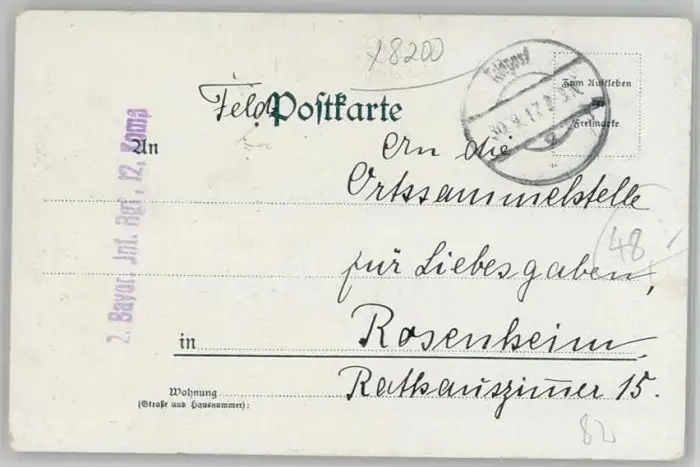 x8200
Feldpost
30.9.17.
Zum Aufkleben
der
Freimarke
Feld Postkarte
2. Bayer. Inf. Rgt, 12. Komp
An
An die
Ortssammelstelle
48
für Liebesgaben,
in
Rosenheim,
Rathauszimmer 15.
Wohnung
(Straße und Hausnummer):
82